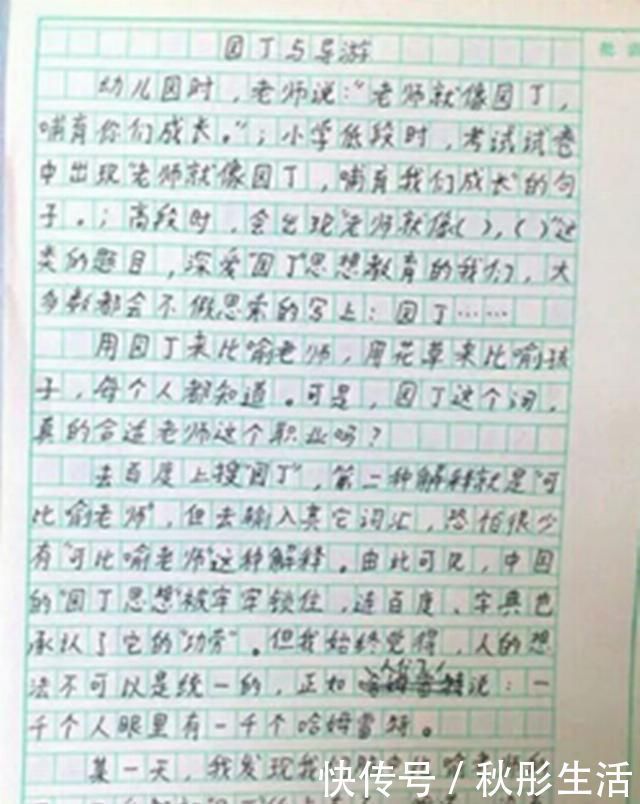 园丁与导游
幼儿园时，老师说："老师就像园丁，
哺育你们成长。"；小学低段时，考试试卷
中出现"老师就像园丁，哺育我们成长"的句
子。；高段时，会出现"老师就像( )，( )"这
类的题目，深爱"园丁"思想教育的我们，大
多数都会不假思索的写上：园丁……
用园丁来比喻老师，用花草来比喻孩
子，每个人都知道。可是，园丁这个词，
真的合适老师这个职业吗？
去百度上搜"园丁"，第二种解释就是"可
比喻老师"，但去输入其它词汇，恐怕很少
有"可比喻老师"这种解释。由此可见，中国
的"园丁思想"被牢牢锁住，连百度、字典也
承认了它的"功劳"。但我始终觉得，人的想
法不可以是统一的，正如人们说：一
千个人眼里有一千个哈姆雷特。
某一天，我发现我
快传号／秋彤生活